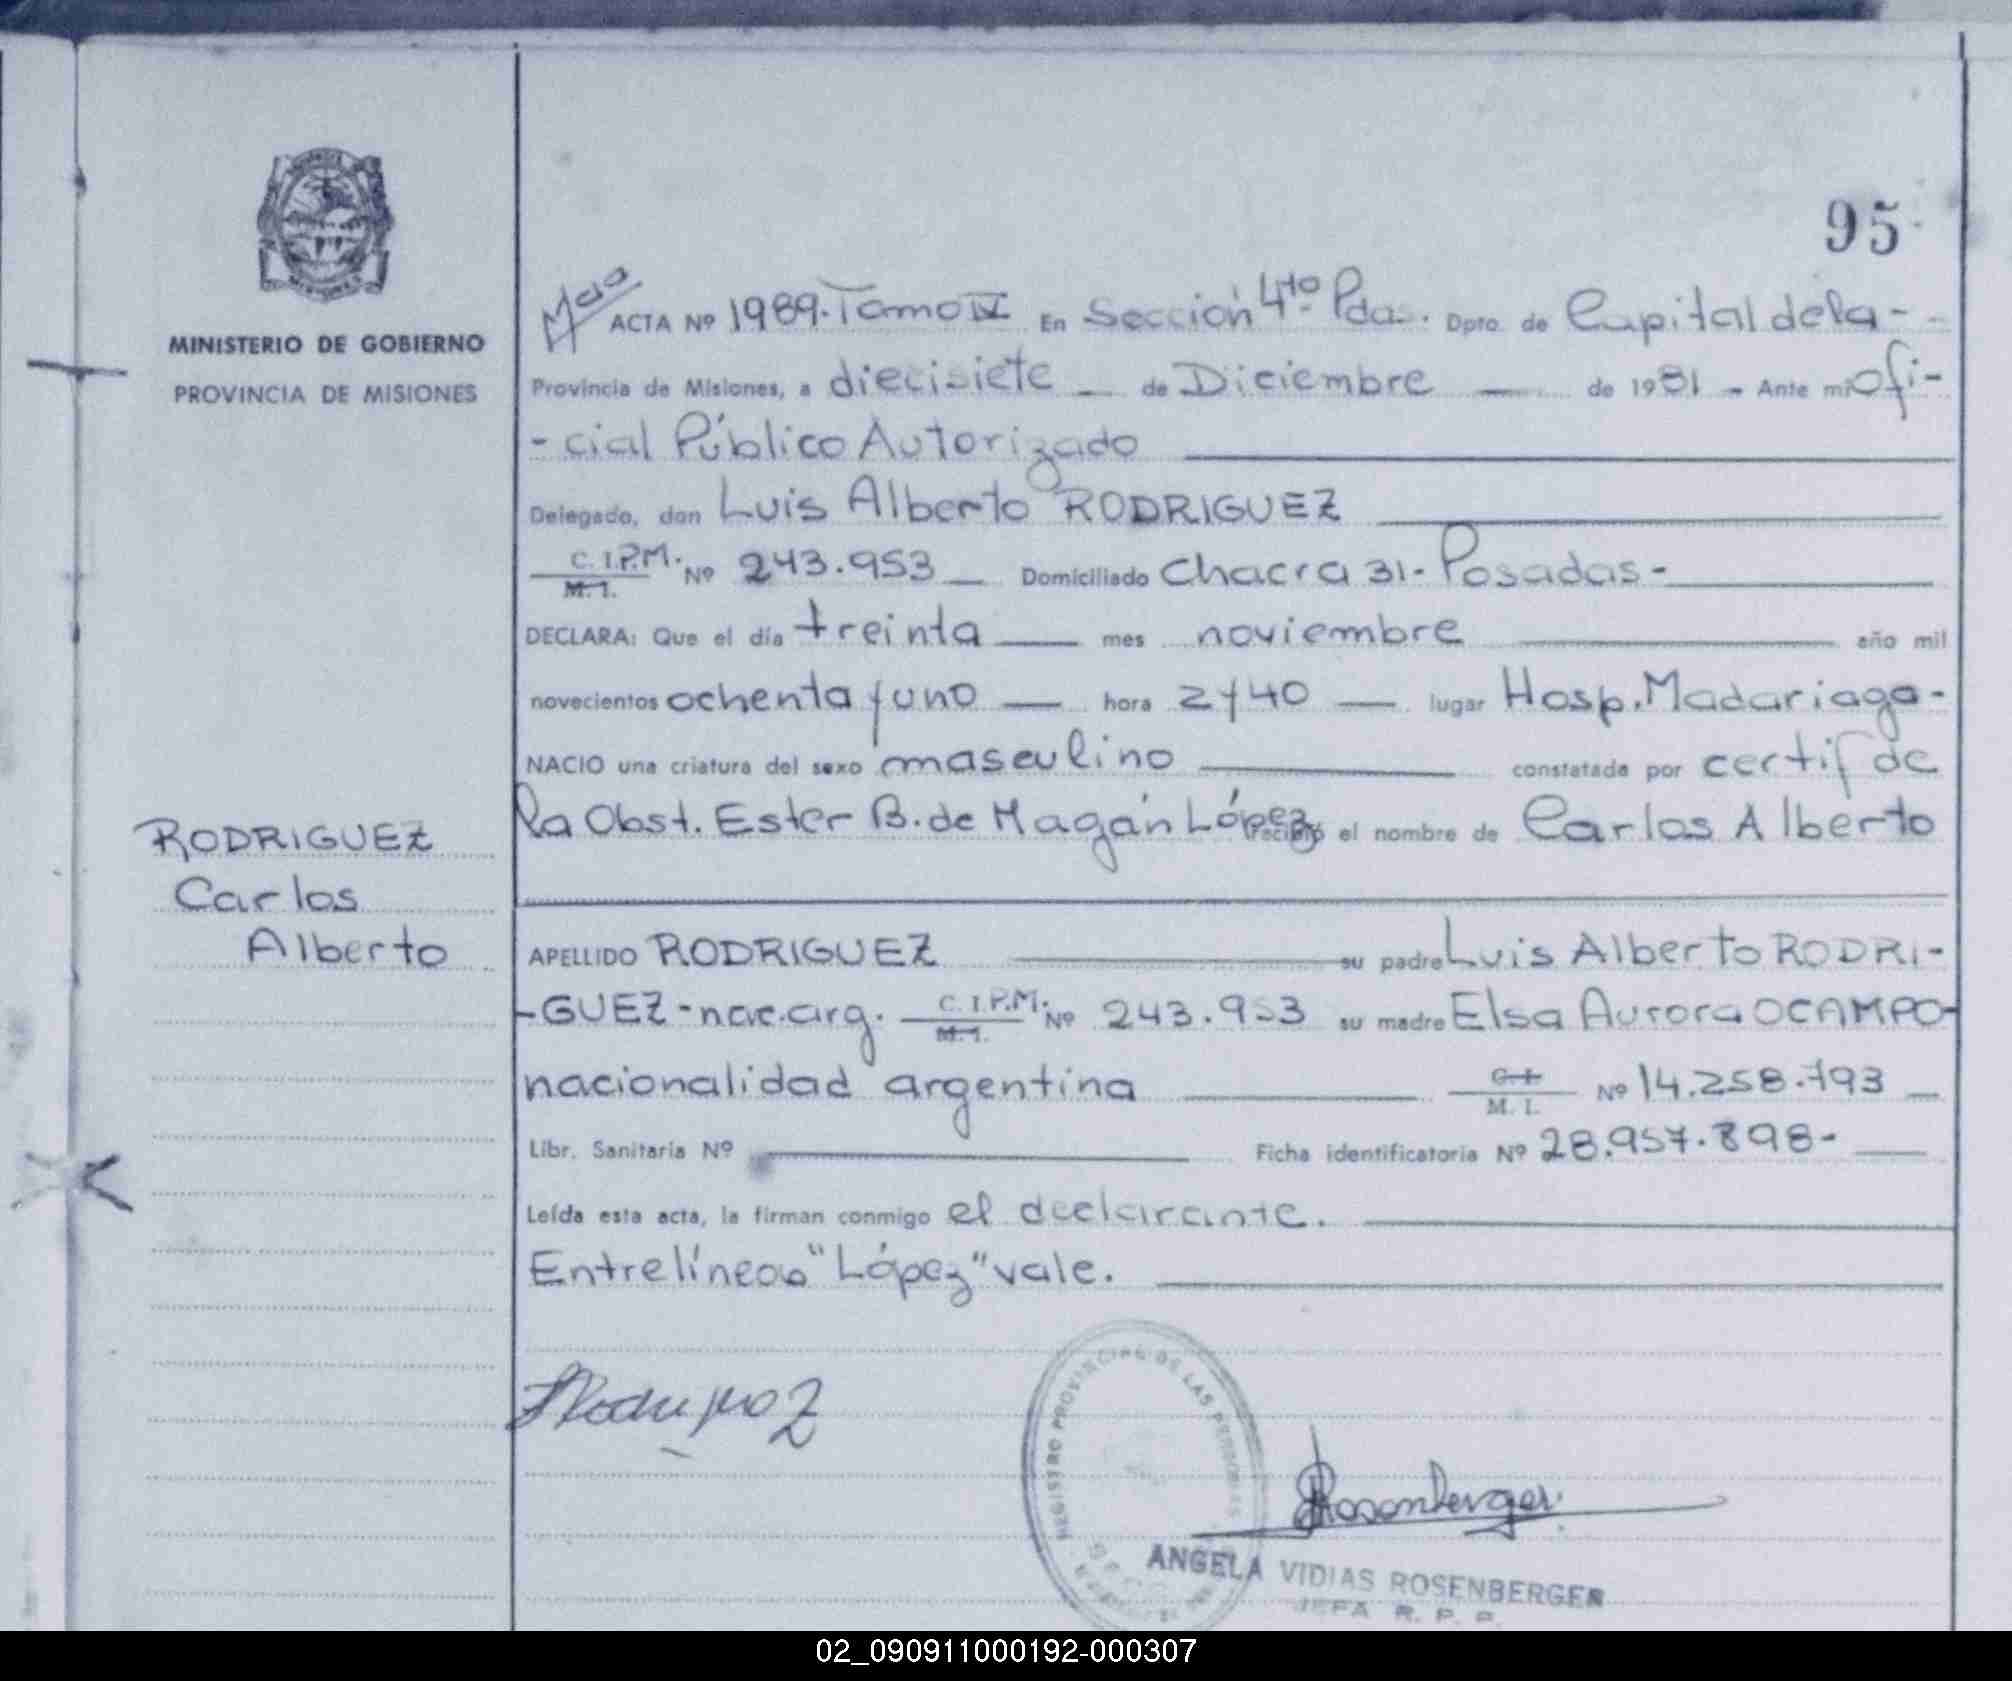 95
MINISTERIO DE GOBIERNO
PROVINCIA DE MISIONES
ACTA Nº 1989. Tomo IV En Sección 4to Pdas. Dpto. de Capital de la -
Provincia de Misiones, a diecisiete de Diciembre de 1981 - Ante mi Ofi-
- cial Público Autorizado
Delegado, don Luis Alberto RODRIGUEZ
C.I.P.M. Nº 243.953 Domiciliado Chacra 31 - Posadas -
M. I.
DECLARA: Que el día treinta mes noviembre año mil
novecientos ochenta y uno hora 2 y 40 lugar Hosp. Madariaga -
NACIO una criatura del sexo masculino constatada por certif de
la Obst. Ester B. de Magán López recibió el nombre de Carlos Alberto
RODRIGUEZ
Carlos
Alberto
APELLIDO RODRIGUEZ su padre Luis Alberto RODRI-
-GUEZ - nac. arg. C.I.P.M. Nº 243.953 su madre Elsa Aurora OCAMPO-
M. I.
nacionalidad argentina C. I. Nº 14.258.793
M. I.
Libr. Sanitaria Nº Ficha identificatoria Nº 28.957.898-
Leída esta acta, la firman conmigo el declarante.
Entrelíneas "López" vale.
Rodriguez
REGISTRO PROVINCIAL DE LAS PERSONAS
Rosenberger
ANGELA VIDIAS ROSENBERGER
JEFA R. P. P.
02_090911000192-000307